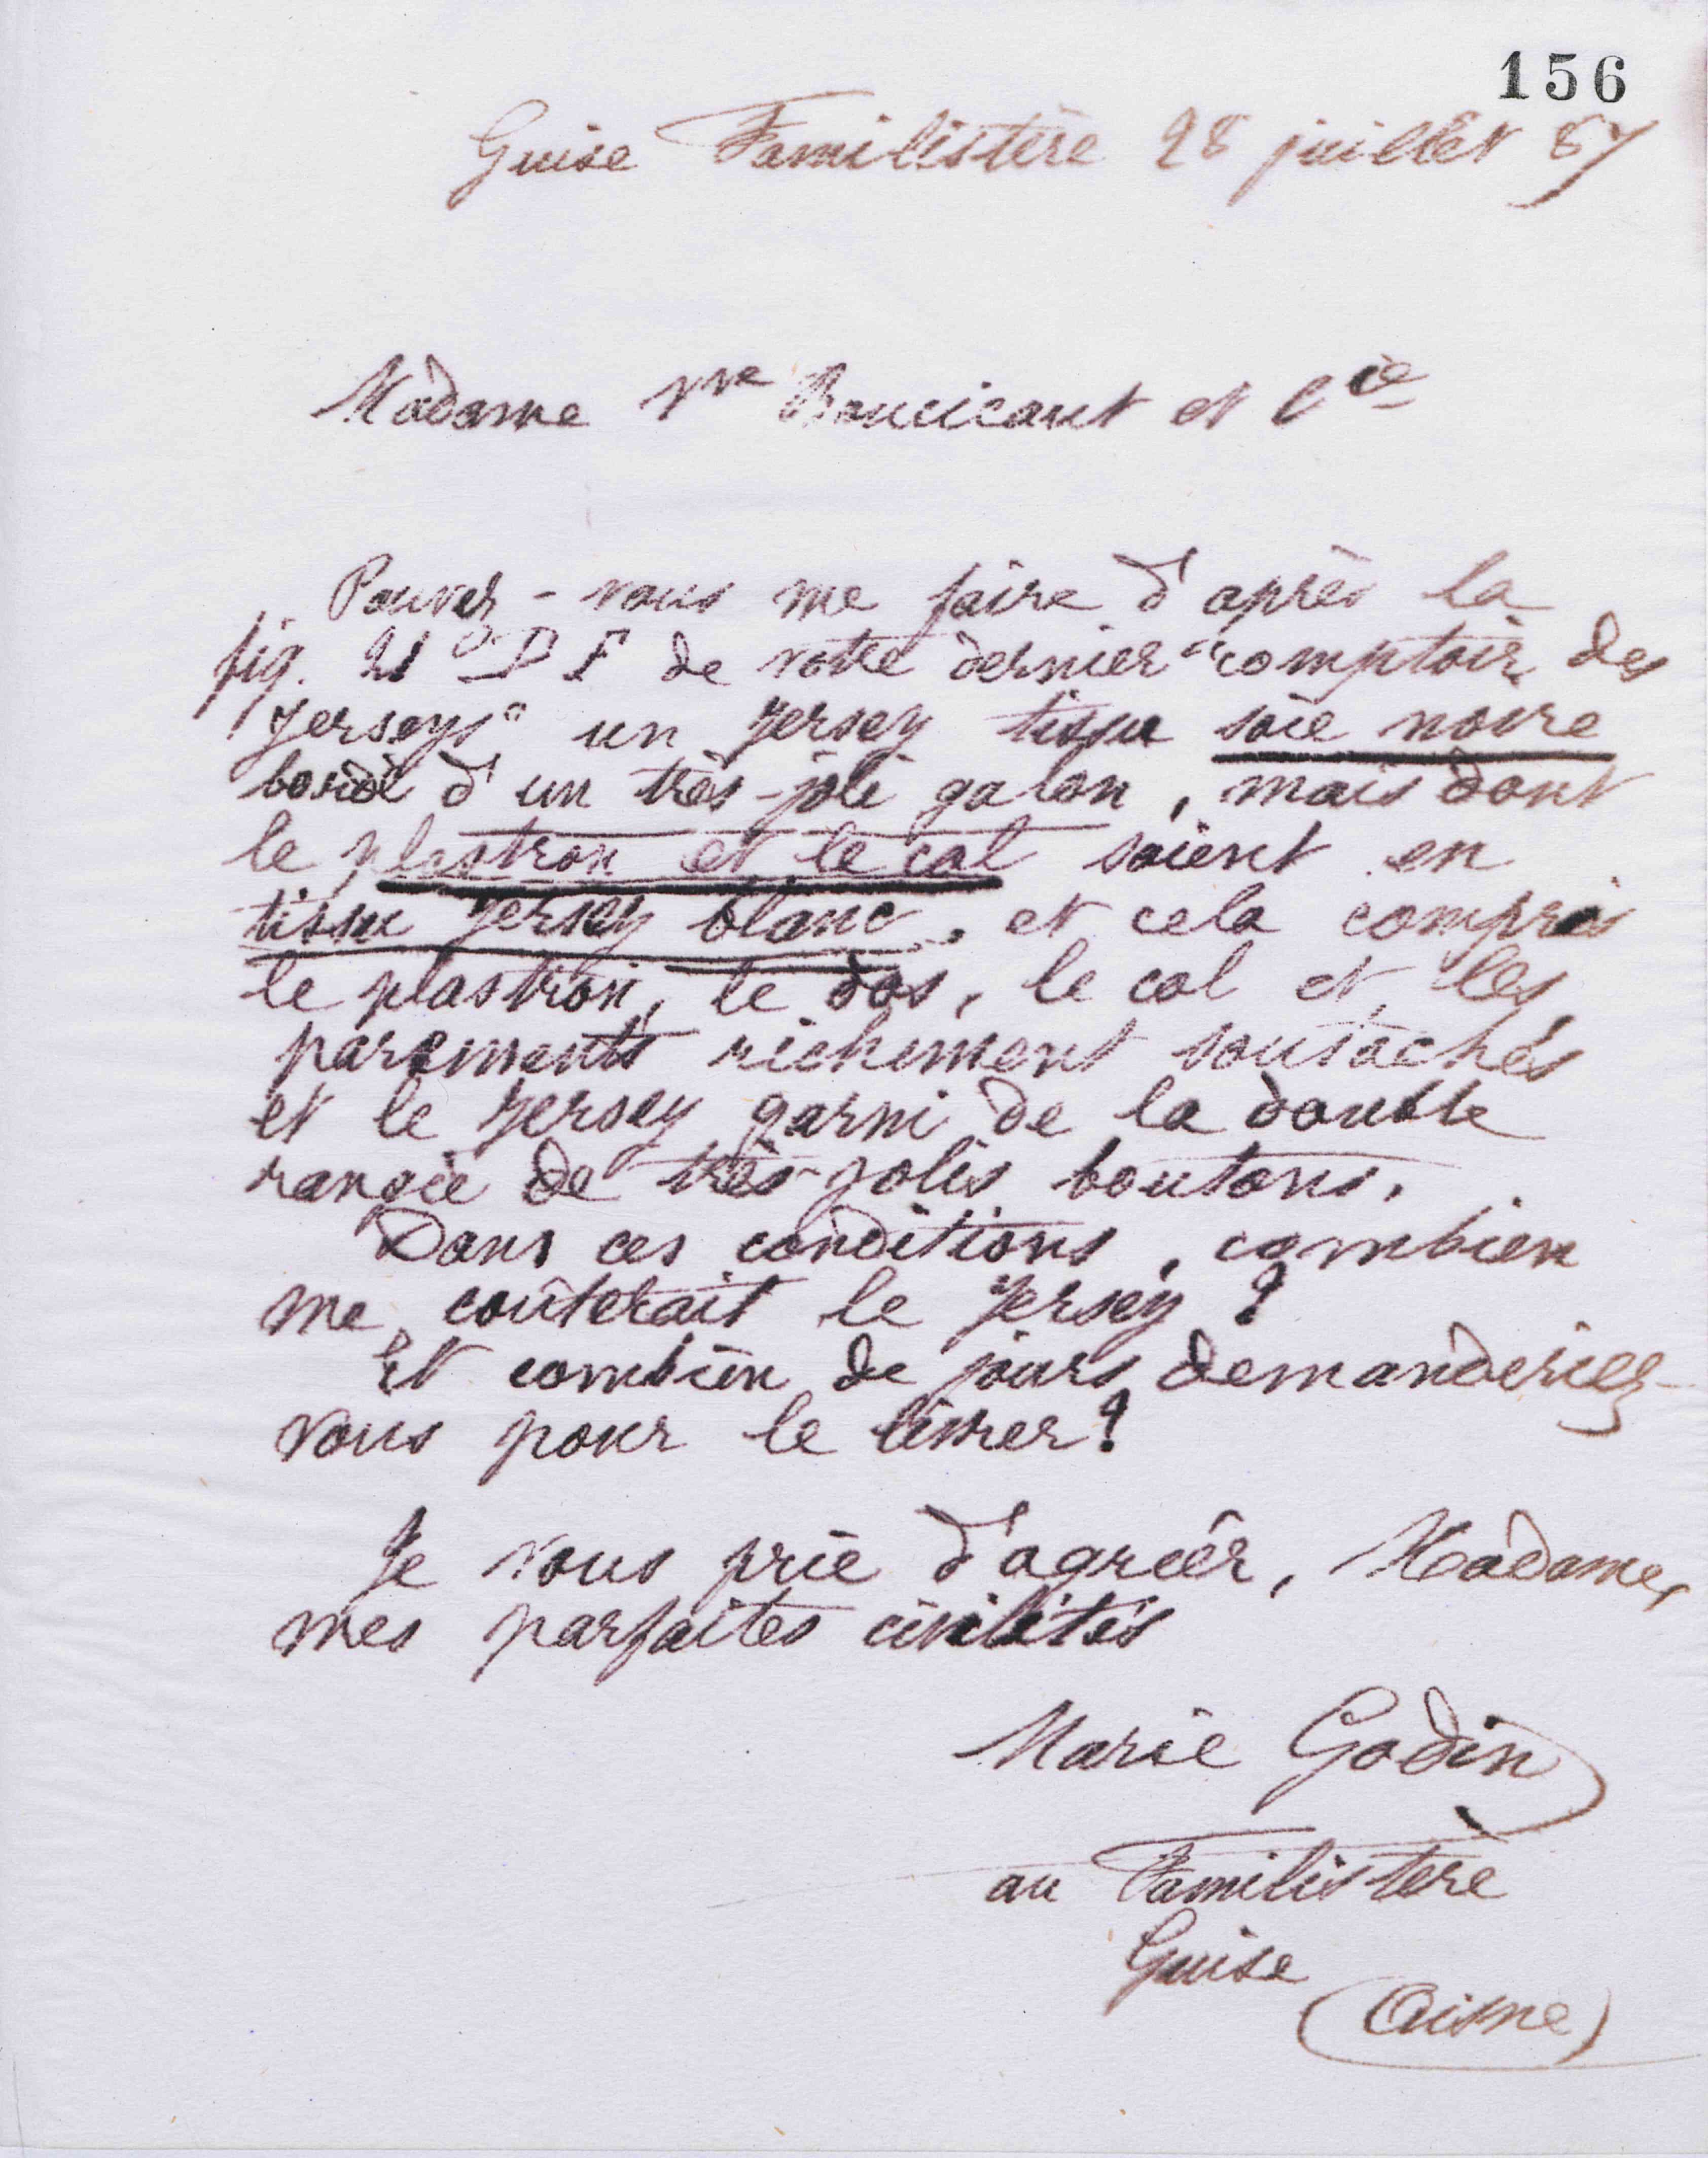 156
Guise Familistère 28 juillet 87
Madame Vve Boucicaut et Cie
Pouvez-vous me faire d'après la
fig. 21 de votre dernier "comptoir des
Jerseys" un Jersey tissu soie noire
bordé d'un très-joli galon, mais dont
le plastron et le col soient en
tissu Jersey blanc, et cela compris
le plastron, le dos, le col et les
parements richement soutachés
et le Jersey garni de la double
rangée de très-jolis boutons.
Dans ces conditions, combien
me coûterait le Jersey ?
Et combien de jours demanderiez-
vous pour le livrer ?
Je vous prie d'agréer, Madame,
mes parfaites civilités
Marie Godin
au Familistère
Guise
(Aisne)